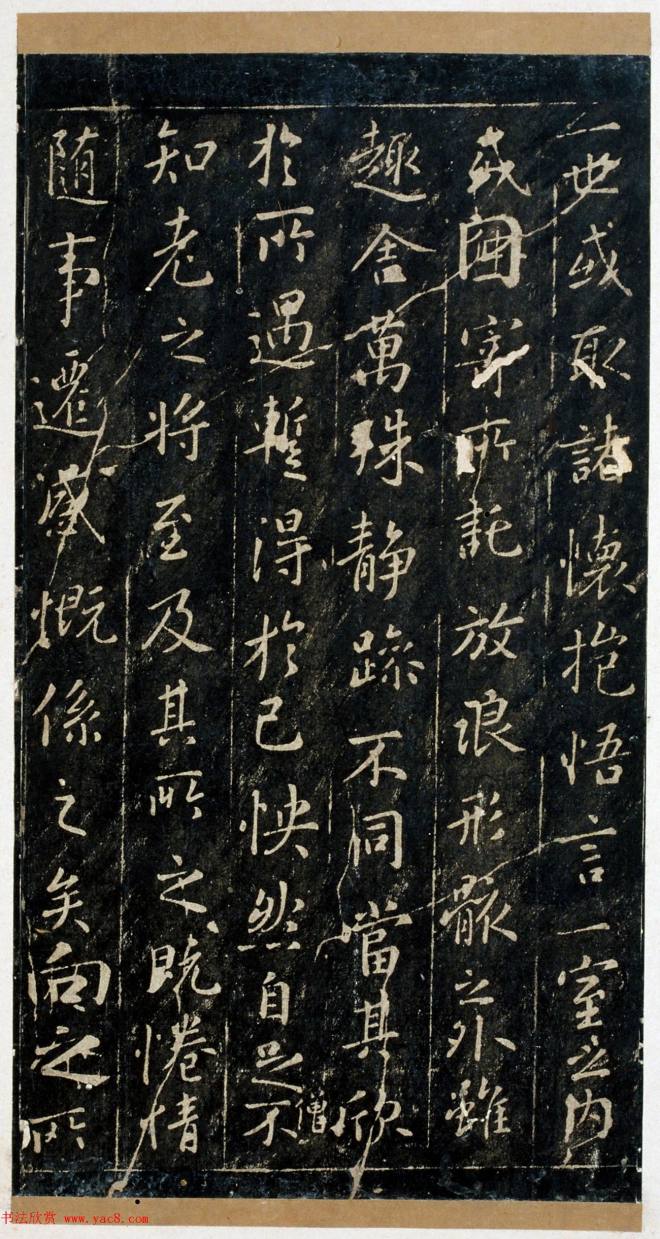 一世或取諸懷抱悟言一室之内
或因寄所託放浪形骸之外雖
趣舍萬殊静躁不同當其欣
於所遇暫得於己怏然自足不
僧
知老之將至及其所之既惓情
随事遷感慨係之矣向之所
书法欣赏 www.yac8.com